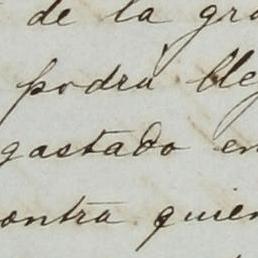 de la gra
podrá lleg
gastado en
ontra quien